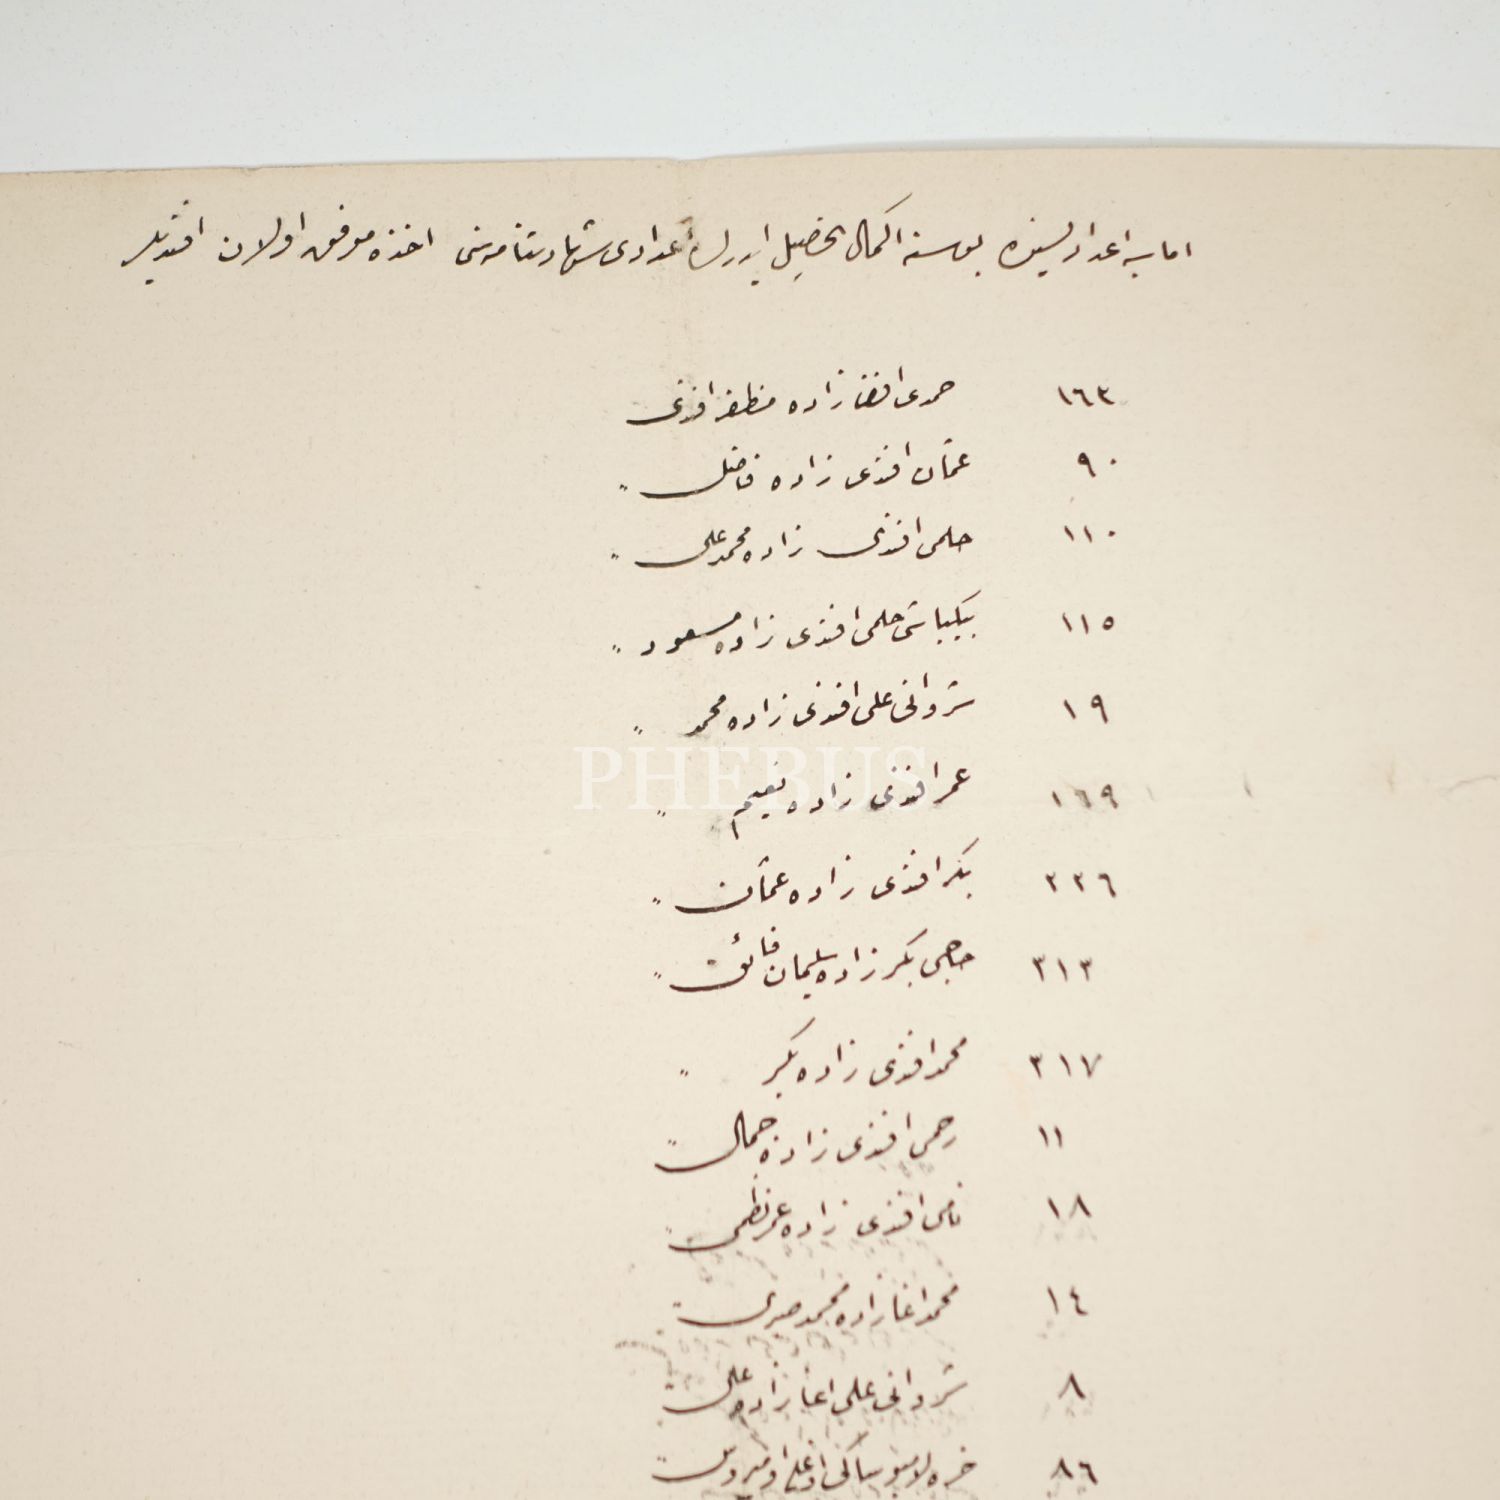 اماسیه اعدادیسنده بو سنه اکمال تحصیل ایدرك اعدادی شهادتنامه‌سنی اخذه موفق اولان افندیلر
١٦٣ حمدی افندی زاده مظفر افندی
٩٠ عثمان افندی زاده فاضل "
١١٠ حلمی افندی زاده محمد علی "
١١٥ بیكباشی حلمی افندی زاده مسعود "
١٩ شروانی علی افندی زاده محمد "
١٦٩ عمر افندی زاده نعیم "
٢٢٦ بكر افندی زاده عثمان "
٣١٣ حاجی بكر زاده سلیمان فائق "
٣١٧ محمد افندی زاده بكر "
١١ رحمی افندی زاده جمال "
١٨ نامی افندی زاده عمر نظمی "
١٤ محمد اغا زاده محمد صبری "
٨ شروانی علی اغا زاده علی "
٨٦ اوغلی "
PHEBUS